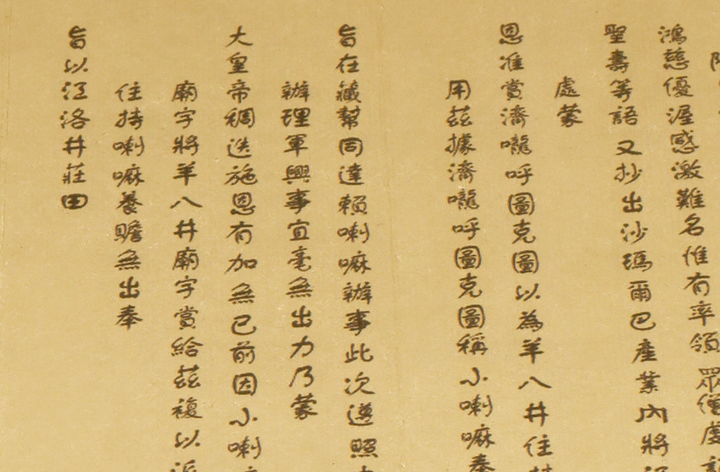 鴻慈優渥感激難名惟有率領眾僧虔
聖壽等語又抄出沙瑪爾巴產業內將
處蒙
恩准賞濟嚨呼圖克圖以為羊八井住
用茲據濟嚨呼圖克圖稱小喇嘛奉
旨在藏幫同達賴喇嘛辦事此次遵照
辦理軍興事宜毫無出力乃蒙
大皇帝稠迭施恩有加無已前因小喇
廟宇將羊八井廟宇賞給茲複以
住持喇嘛養贍無出奉
旨以江洛井莊田